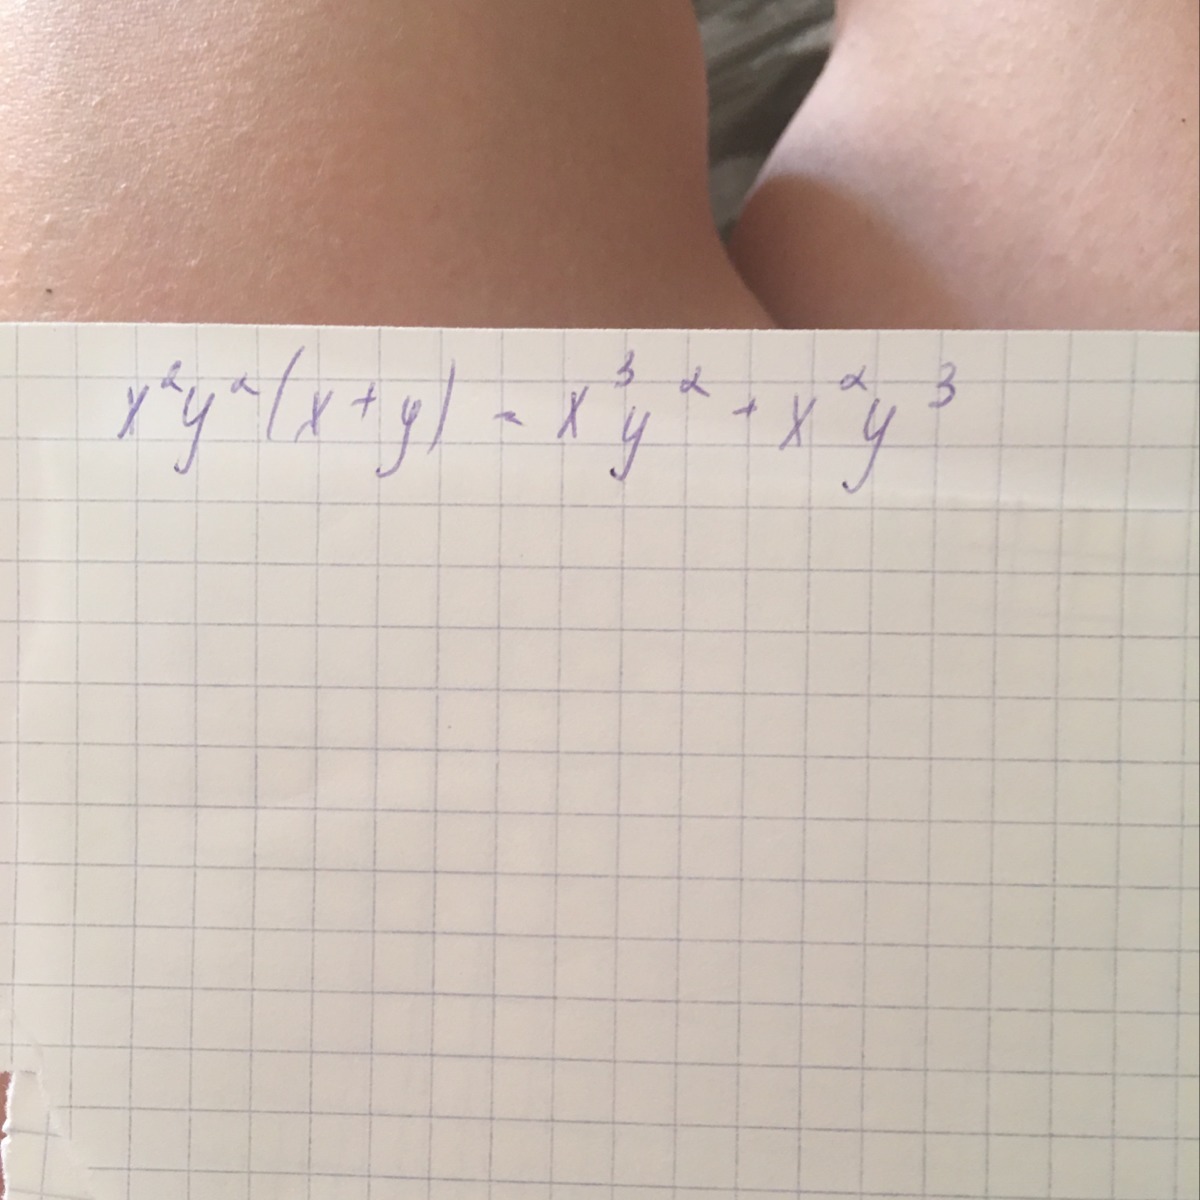 x²y²(x+y) = x³y² + x²y³